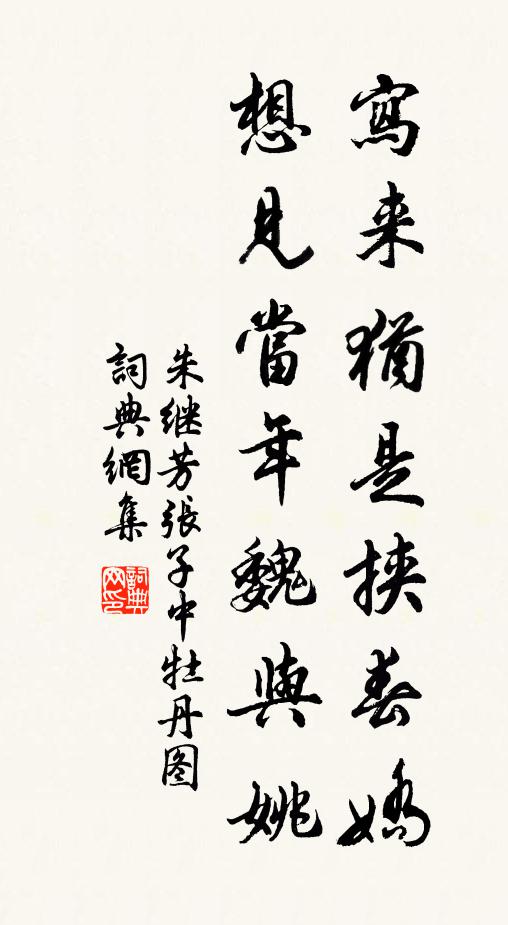 寫来猶是挾春嬌
想見當年魏與姚
朱继芳張子中牡丹图
詞典網集
詞典
网印